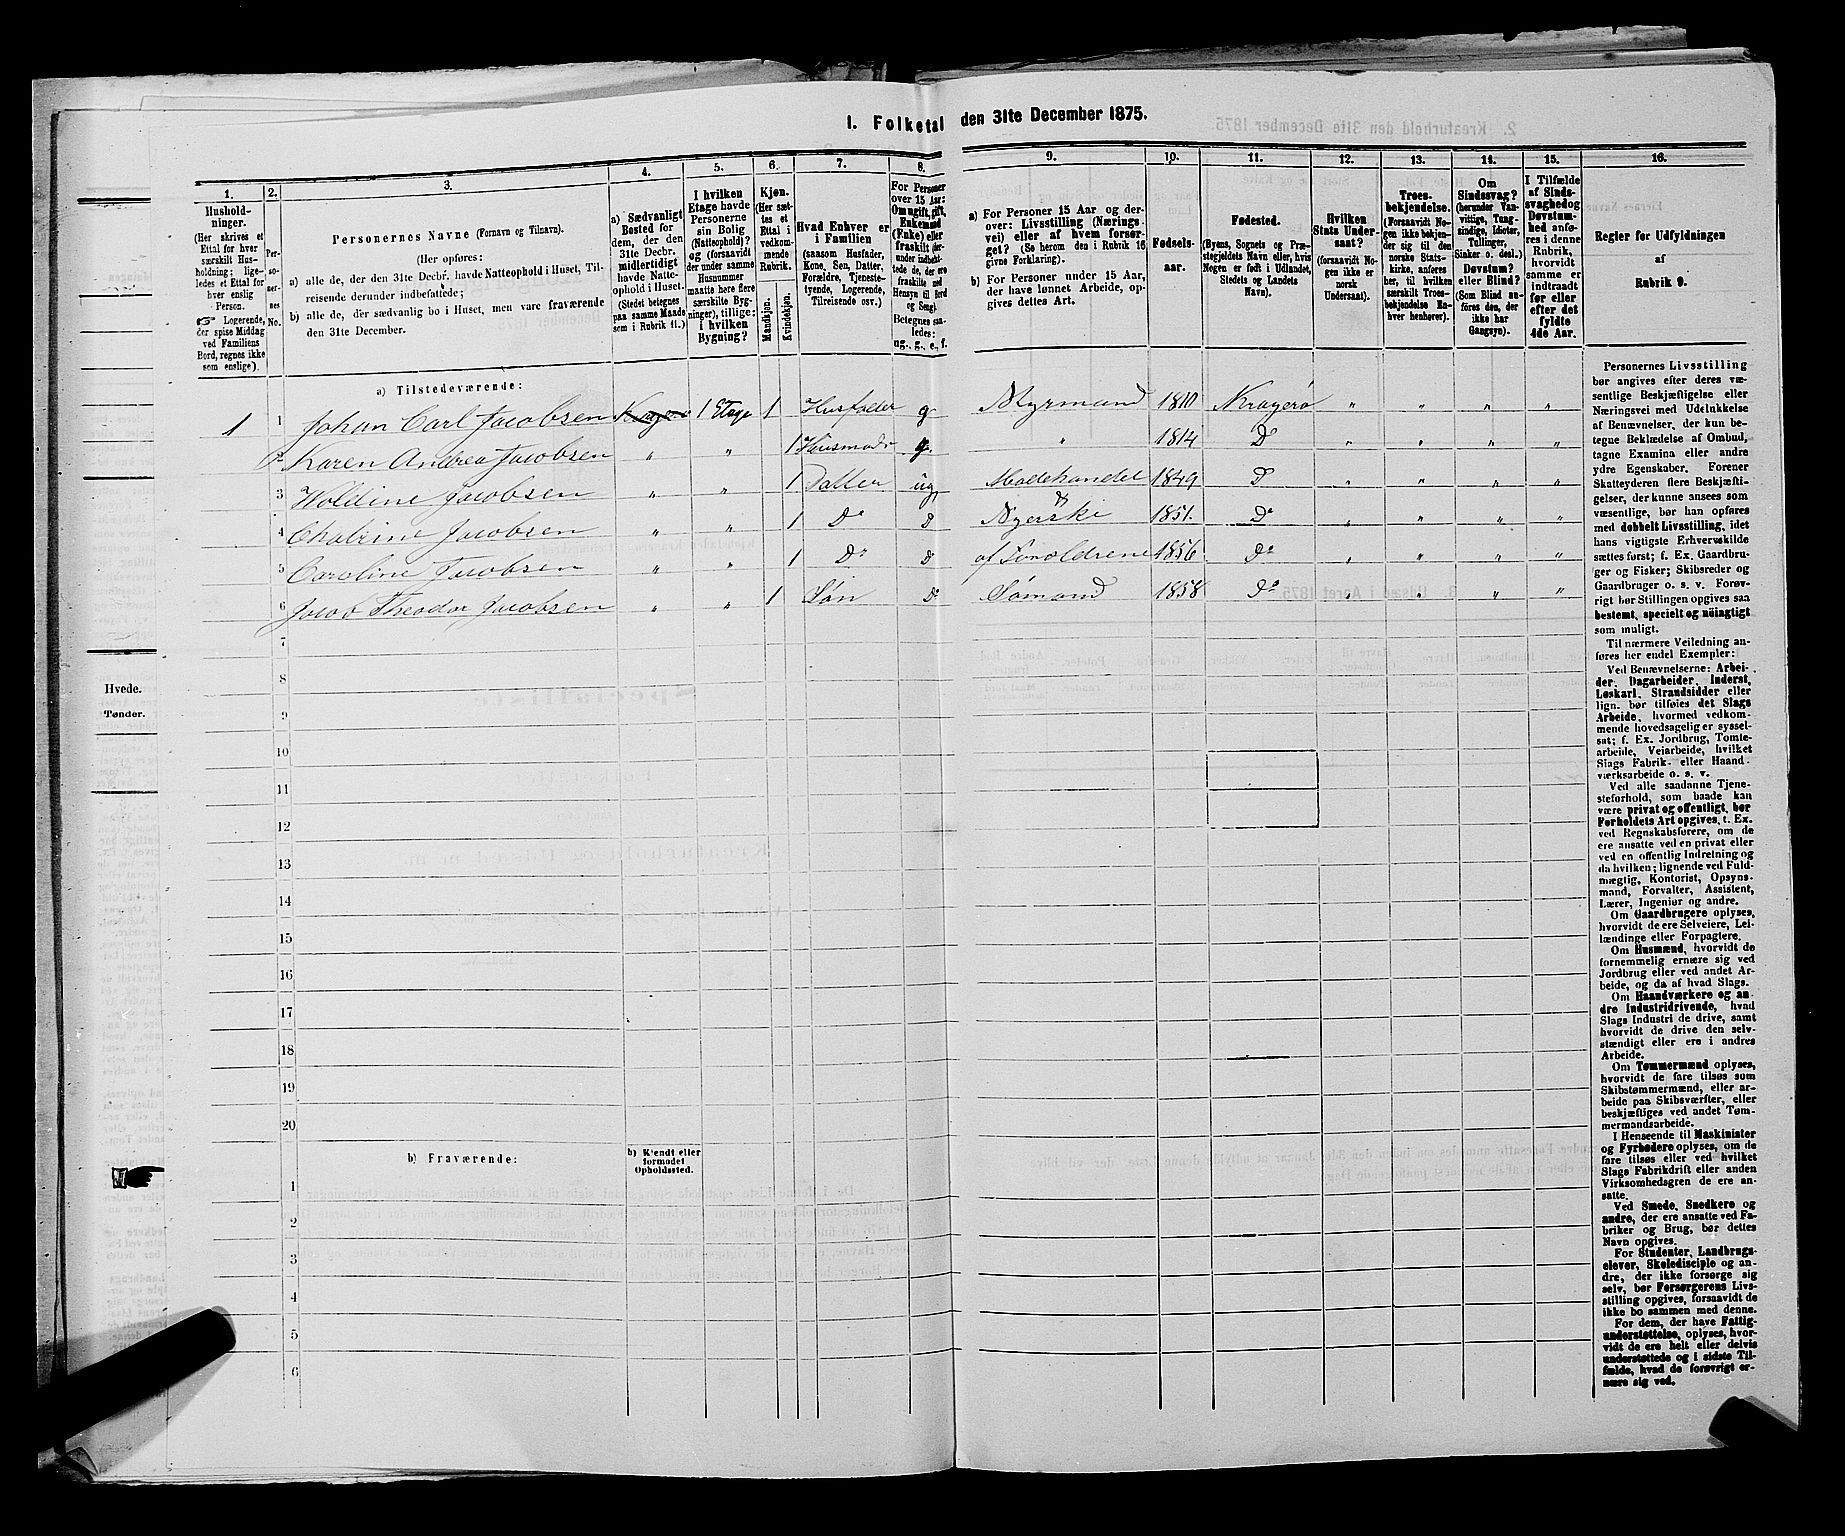 I. Folketal den 31te December 1875.
2. Kreaturhold den 31te December 1875
1.
2.
3.
4.
5.
6.
7.
8.
9.
10.
11.
12.
13.
14.
15.
16.
Hushold-
ninger.
(Her skrives et
Ettal for hver
særskilt Hus-
holdning; lige-
ledes et Ettal for
hver enslig
Person.
☞ Logerende,
der spise Middag
ved Familiens
Bord, regnes ikke
som enslige).
Per-
so-
ner-
nes
No.
Personernes Navne (Fornavn og Tilnavn).
(Her opføres:
a) alle de, der den 31te Decbr. havde Natteophold i Huset, Til-
reisende derunder indbefattede;
b) alle de, der sædvanlig bo i Huset, men vare fraværende
den 31te December.
a) Sædvanligt
Bosted for
dem, der den
31te Decbr.
midlertidigt
havde Natte-
ophold i Huset.
(Stedet betegnes
paa samme Maade
som i Rubrik 11.)
I hvilken
Etage havde
Personerne
sin Bolig
(Natteophold)?
og (forsaavidt
der under samme
Husnummer
maatte høre flere
særskilte Byg-
ninger), tillige:
i hvilken
Bygning?
Kjøn.
(Her sæt-
tes et
Ettal i
vedkom-
mende
Rubrik.
Mandkjøn.
Kvindekjøn.
Hvad Enhver er
i Familien
(saasom Husfader,
Kone, Søn, Datter,
Forældre, Tjeneste-
tyende, Logerende,
Tilreisende osv.)
For Personer
over 15 Aar:
Om ugift, gift,
Enkemand
(Enke) eller
fraskilt der-
under indbefat-
tede de, der ere
fraskilte med
Hensyn til Bord
og Seng).
Betegnes saa-
ledes:
ug., g., e., f.
a) For Personer 15 Aar og der-
over: Livsstilling (Nærings-
vei) eller af hvem forsør-
get? (Se herom den i Rubrik 16
givne Forklaring).
b) For Personer under 15 Aar,
der have lønnet Arbeide, op-
gives dettes Art.
Fødsels-
aar.
Fødested.
(Byens, Sognets og Præ-
stegjeldets Navn eller, hvis
Nogen er født i Udlandet,
Stedets og Landets
Navn).
Hvilken
Stats Under-
saat?
(forsaavidt No-
gen ikke er
norsk
Undersaat).
Troes-
bekjendelse.
(Forsaavidt No-
gen ikke bekjen-
der sig til den
norske Stats-
kirke, anføres
her, til hvilken
særskilt Troes-
bekjendelse En-
hver henhører).
Om
Sindssvag?
(herunder Van-
vittige, Tung-
sindige, Idioter,
Tullinger,
Sinker o. desl.)
Døvstum?
eller Blind?
(Som Blind an-
føres den, der
ikke har
Gangsyn).
I Tilfælde
af Sinds-
svaghed og
Døvstum-
hed anfø-
res i denne
Rubrik,
hvorvidt
samme er
indtraadt
før eller
efter det
fyldte
4de Aar.
Regler for Udfyldningen
af
Rubrik 9.
a) Tilstedeværende:
1 1 Johan Carl Jacobsen 1 Etage 1 Husfader g. 1810 Kragerø „ „ „ „
2 Karen Andrea Jacobsen „ „ 1 Husmoder g. „ 1814 D „ „ „ „
3 Woldine Jacobsen „ „ 1 Datter ug Modehandel 1849 D „ „ „ „
4 Jacobsen „ „ 1 Do D & Nyerski 1851. Do „ „ „ „
5 Caroline Jacobsen „ „ 1 Do D af Foreldrene 1856 Do „ „ „ „
6 Jacob Theodor Jacobsen „ „ 1 Søn D Sømand 1858 Do „ „ „ „
7
8
9
10
11
12
13
14
15
16
17
18
19
20
b) Fraværende:
b) Kjendt eller
formodet
Opholdssted.
1
2
3
4
5
6
Personernes Livsstilling
bør angives efter deres væ-
sentlige Beskjæftigelse eller
Næringsvei med Udelukkelse
af Benævnelser, der kun be-
tegne Beklædelse af Ombud,
tagne Examina eller andre
ydre Egenskaber. Forener
Skatteyderen flere Beskjæfti-
gelser, der kunne ansees som
væsentlige, bør han opføres
med dobbelt Livsstilling, idet
hans vigtigste Erhvervskilde
sættes først; f. Ex. Gaardbru-
ger og Fisker; Skibsreder og
Gaardbruger o. s. v. Forøv-
rigt bør Stillingen opgives saa
bestemt, specielt og nöiagtigt
som muligt.
Til nærmere Veiledning an-
føres her endel Exempler:
Ved Benævnelserne: Arbei-
der, Dagarbeider, Inderst,
Løskarl, Strandsidder eller
lign. bør tilføies det Slags
Arbeide, hvormed vedkom-
mende hovedsagelig er syssel-
sat; f. Ex. Jordbrug, Tomte-
arbeide, Veiarbeide, hvilket
Slags Fabrik- eller Haand-
værksarbeide o. s. v.
Ved alle saadanne Tjene-
steforhold, som baade kan
være privat og offentligt, bør
Forholdets Art opgives, t. Ex.
ved Regnskabsførere, om de
ere ansatte ved en privat eller
ved en offentlig Indretning og
da hvilken; lignende ved Fuld-
mægtig, Kontorist, Opsyns-
mand, Forvalter, Assistent,
Lærer, Ingeniør og andre.
Om Gaardbrugere oplyses,
hvorvidt de ere Selveiere, Lei-
lændinge eller Forpagtere.
Om Husmænd, hvorvidt de
fornemmelig ernære sig ved
Jordbrug eller ved andet Ar-
beide, og da af hvad Slags.
Om Haandværkere og an-
dre Industridrivende, hvad
Slags Industri de drive, samt
hvorvidt de drive den selv-
stændigt eller ere i andres
Arbeide.
Om Tømmermænd oplyses,
hvorvidt de fare tilsøs som
Skibstømmermænd, eller ar-
beide paa Skibsværfter, eller
beskjæftiges ved andet Tøm-
mermandsarbeide.
I Henseende til Maskinister
og Fyrbødere oplyses, om de
fare tilsøs eller ved hvilket
Slags Fabrikdrift eller anden
Virksomhedsgren de ere an-
satte.
Ved Smede, Snedkere og
andre, der ere ansatte ved Fa-
briker og Brug, bør dettes
Navn opgives.
For Studenter, Landbrugs-
elever, Skoledisciple og an-
dre, der ikke forsørge sig
selv, bør Forsørgerens Livs-
stilling opgives, forsaavidt de
ikke bo sammen med denne.
For dem, der have Fattig-
understøttelse, oplyses, hvor-
vidt de ere helt eller delvis
understøttede og i sidste Til-
fælde, hvad de forøvrigt er-
nære sig ved.
Hvede.
Tønder.